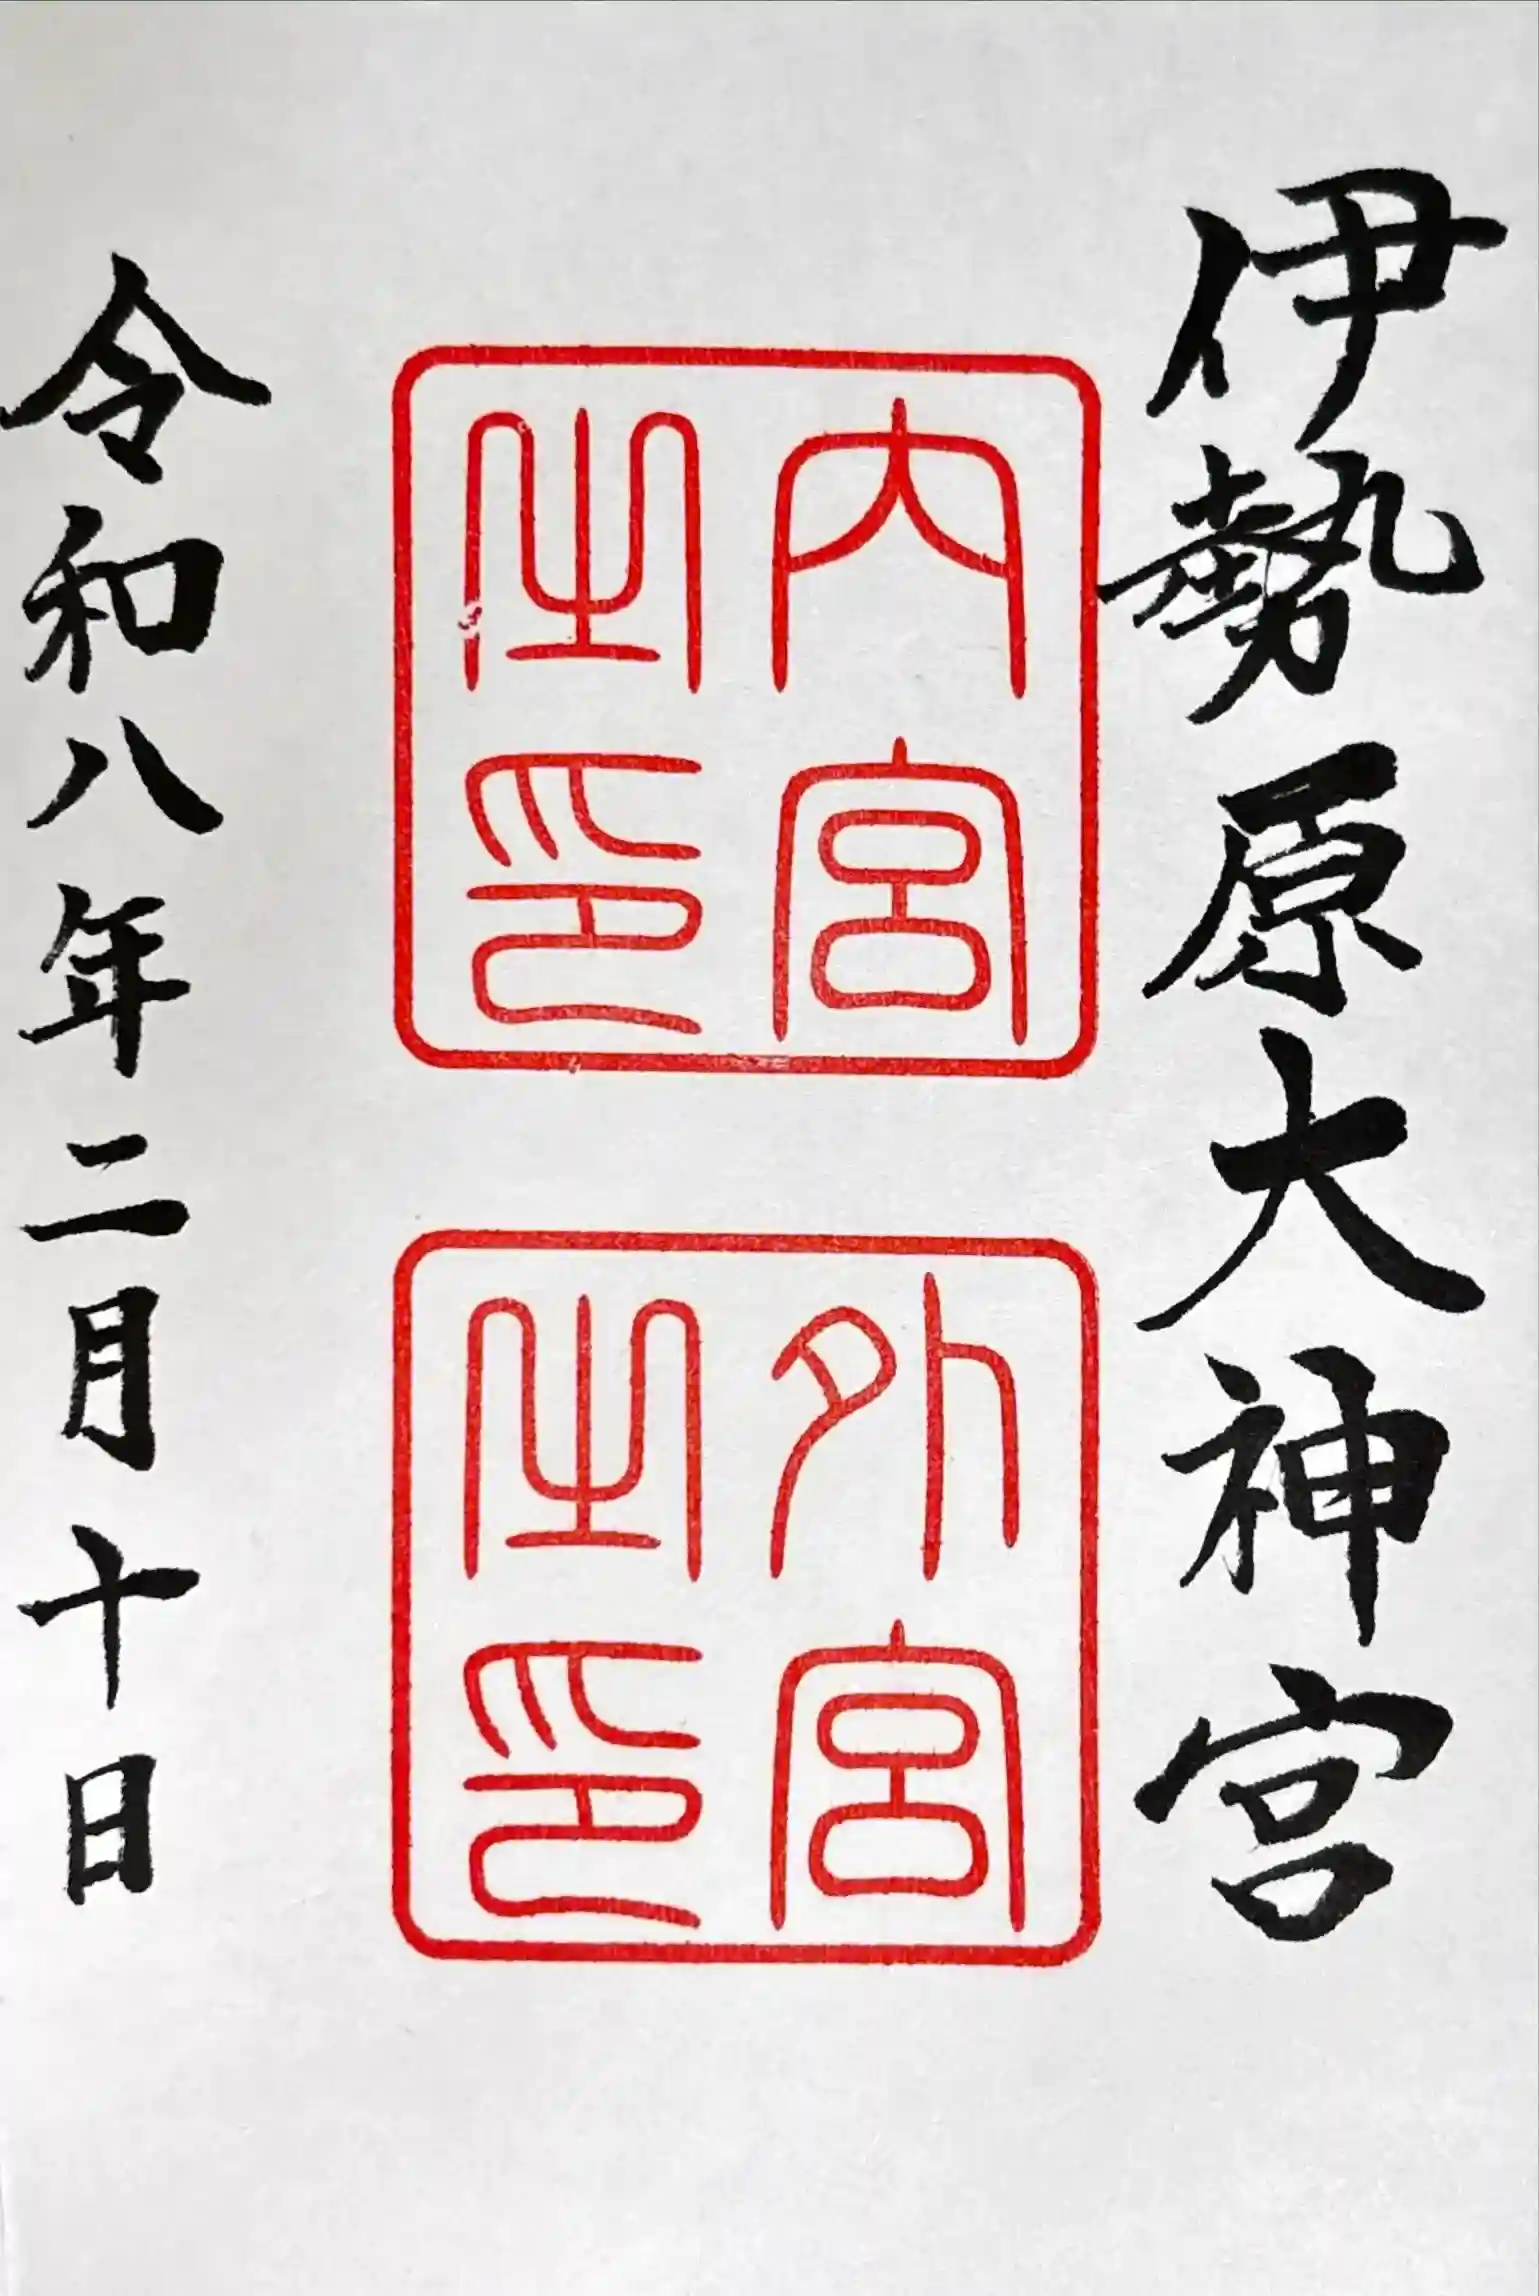 伊勢原大神宮
内宮之印
外宮之印
令和八年二月十日